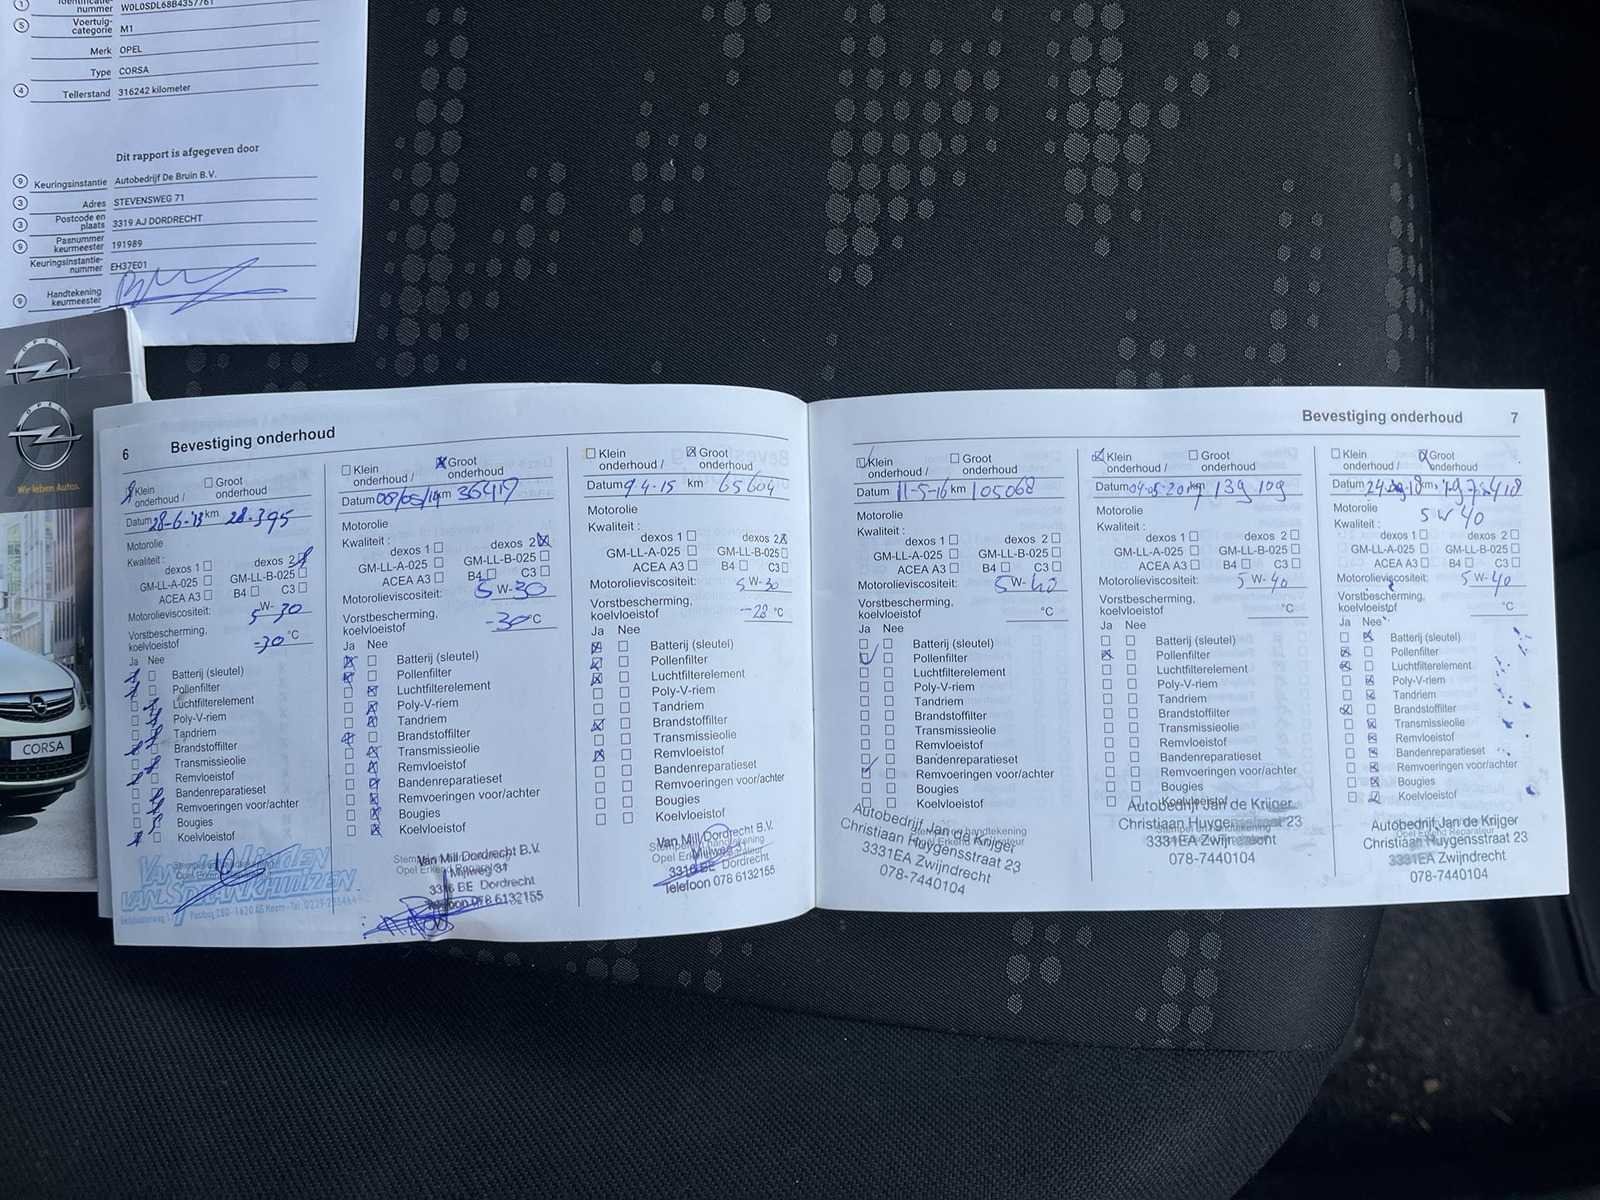 Identificatie-
① nummer W0L0SDL68B4357761
⑤ Voertuig-
categorie M1
Merk OPEL
Type CORSA
④ Tellerstand 316242 kilometer
Dit rapport is afgegeven door
⑨ Keuringsinstantie Autobedrijf De Bruin B.V.
③ Adres STEVENSWEG 71
③ Postcode en
plaats 3319 AJ DORDRECHT
⑨ Pasnummer
keurmeester 191989
Keuringsinstantie-
nummer EH37E01
⑨ Handtekening
keurmeester
OPEL
OPEL
Wir leben Autos.
CORSA
6 Bevestiging onderhoud
Klein
onderhoud /
Groot
onderhoud
Datum 28-6-13 km 28.395
Motorolie
Kwaliteit :
dexos 1 dexos 2
GM-LL-A-025 GM-LL-B-025
ACEA A3 B4 C3
Motorolieviscositeit: 5 W- 30
Vorstbescherming,
koelvloeistof -30 °C
Ja Nee
Batterij (sleutel)
Pollenfilter
Luchtfilterelement
Poly-V-riem
Tandriem
Brandstoffilter
Transmissieolie
Remvloeistof
Bandenreparatieset
Remvoeringen voor/achter
Bougies
Koelvloeistof
Klein
onderhoud /
Groot
onderhoud
Datum km 36419
Motorolie
Kwaliteit :
dexos 1 dexos 2
GM-LL-A-025 GM-LL-B-025
ACEA A3 B4 C3
Motorolieviscositeit: 5 W-30
Vorstbescherming,
koelvloeistof -30 °C
Ja Nee
Batterij (sleutel)
Pollenfilter
Luchtfilterelement
Poly-V-riem
Tandriem
Brandstoffilter
Transmissieolie
Remvloeistof
Bandenreparatieset
Remvoeringen voor/achter
Bougies
Koelvloeistof
Van Mill Dordrecht B.V.
Mijlweg 31
3316 BE Dordrecht
Telefoon 078 6132155
Klein
onderhoud /
Groot
onderhoud
Datum 9 4-15 km 65604
Motorolie
Kwaliteit :
dexos 1 dexos 2
GM-LL-A-025 GM-LL-B-025
ACEA A3 B4 C3
Motorolieviscositeit: 5 W-30
Vorstbescherming,
koelvloeistof -28 °C
Ja Nee
Batterij (sleutel)
Pollenfilter
Luchtfilterelement
Poly-V-riem
Tandriem
Brandstoffilter
Transmissieolie
Remvloeistof
Bandenreparatieset
Remvoeringen voor/achter
Bougies
Koelvloeistof
Van Mill Dordrecht B.V.
3316 BE Dordrecht
Telefoon 078 6132155
Bevestiging onderhoud 7
Klein
onderhoud /
Groot
onderhoud
Datum 11-5-16 km 105068
Motorolie
Kwaliteit :
dexos 1 dexos 2
GM-LL-A-025 GM-LL-B-025
ACEA A3 B4 C3
Motorolieviscositeit: 5 W- 40
Vorstbescherming,
koelvloeistof °C
Ja Nee
Batterij (sleutel)
Pollenfilter
Luchtfilterelement
Poly-V-riem
Tandriem
Brandstoffilter
Transmissieolie
Remvloeistof
Bandenreparatieset
Remvoeringen voor/achter
Bougies
Koelvloeistof
Autobedrijf Jan de Krijger
Christiaan Huygensstraat 23
3331EA Zwijndrecht
078-7440104
Klein
onderhoud /
Groot
onderhoud
Datum km 139 109
Motorolie
Kwaliteit :
dexos 1 dexos 2
GM-LL-A-025 GM-LL-B-025
ACEA A3 B4 C3
Motorolieviscositeit: 5 W-40
Vorstbescherming,
koelvloeistof °C
Ja Nee
Batterij (sleutel)
Pollenfilter
Luchtfilterelement
Poly-V-riem
Tandriem
Brandstoffilter
Transmissieolie
Remvloeistof
Bandenreparatieset
Remvoeringen voor/achter
Bougies
Koelvloeistof
Autobedrijf Jan de Krijger
Christiaan Huygensstraat 23
3331EA Zwijndrecht
078-7440104
Klein
onderhoud /
Groot
onderhoud
Datum km
Motorolie 5 W 40
Kwaliteit :
dexos 1 dexos 2
GM-LL-A-025 GM-LL-B-025
ACEA A3 B4 C3
Motorolieviscositeit: 5 W-40
Vorstbescherming,
koelvloeistof °C
Ja Nee
Batterij (sleutel)
Pollenfilter
Luchtfilterelement
Poly-V-riem
Tandriem
Brandstoffilter
Transmissieolie
Remvloeistof
Bandenreparatieset
Remvoeringen voor/achter
Bougies
Koelvloeistof
Autobedrijf Jan de Krijger
Christiaan Huygensstraat 23
3331EA Zwijndrecht
078-7440104